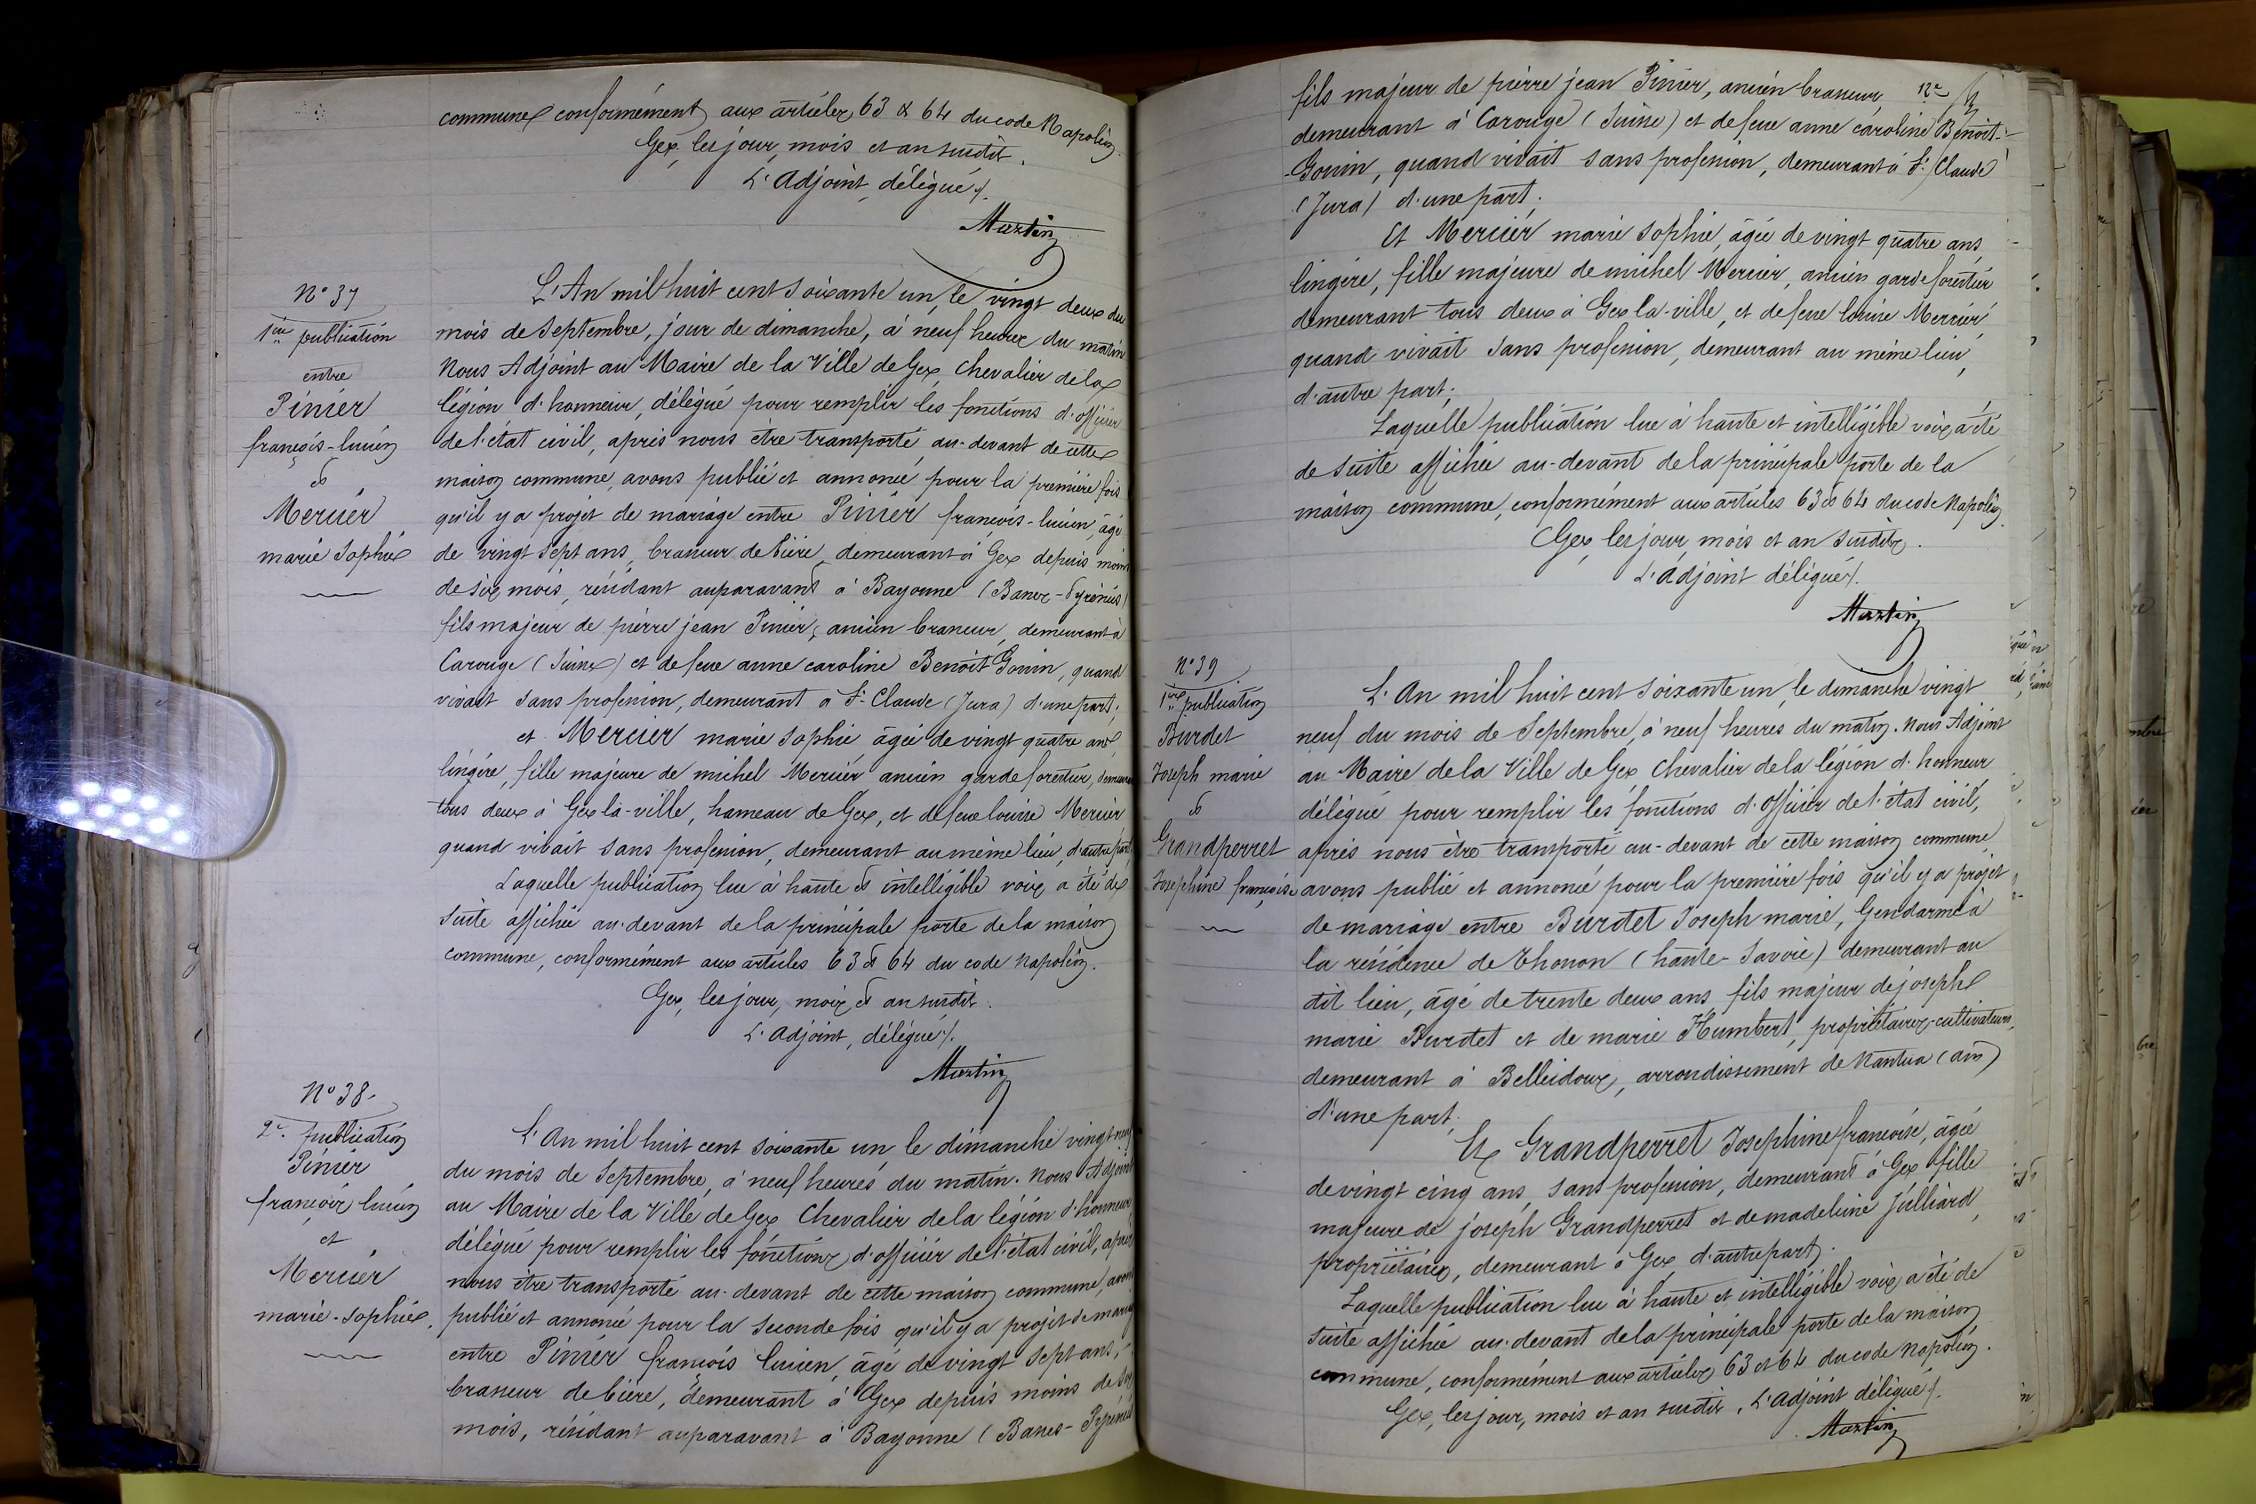 commune conformément aux articles 63 & 64 du code Napoléon.
Gex, les jour, mois et an susdit.
L'Adjoint, délégué /.
Martin
N° 37
1ère publication
entre
Pinier
françois-lucien
&
Mercier
marie Sophie
L'An mil huit cent soixante un, le vingt deux du
mois de Septembre, jour de dimanche, à neuf heures du matin
Nous Adjoint au Maire de la Ville de Gex, Chevalier de la
légion d'honneur, délégué pour remplir les fonctions d'officier
de l'état civil, après nous etre transporté, au-devant de cette
maison commune, avons publié et annoncé pour la première fois
qu'il y a projet de mariage entre Pinier françois-lucien, âgé
de vingt sept ans, brasseur de bière, demeurant à Gex depuis moins
de six mois, résidant auparavant à Bayonne (Basses-Pyrénées)
fils majeur de pierre jean Pinier, ancien brasseur, demeurant à
Carouge (Suisse) et de feue anne caroline Benoit Gonin, quand
vivait sans profession, demeurant à St Claude (Jura) d'une part;
et Mercier marie Sophie âgée de vingt quatre ans
lingère, fille majeure de michel Mercier ancien garde forestier, demeurant
tous deux à Gex la-ville, hameau de Gex, et de feue louise Mercier
quand vivait sans profession, demeurant au même lieu, d'autre part
Laquelle publication lue à haute & intelligible voix a été de
suite affichée au-devant de la principale porte de la maison
commune, conformément aux articles 63 & 64 du code Napoléon.
Gex, les jour, mois & an susdit.
L'adjoint, délégué /.
Martin
N° 38.
2e. publication
Pinier
françois lucien
et
Mercier
marie-sophie.
L'An mil huit cent soixante un, le dimanche vingt-neuf
du mois de Septembre, à neuf heures du matin. Nous Adjoint
au Maire de la Ville de Gex Chevalier de la légion d'honneur
délégué pour remplir les fonctions d'officier de l'état civil, après
nous être transporté au-devant de cette maison commune, avons
publié et annoncé pour la seconde fois qu'il y a projet de mariage
entre Pinier françois lucien, âgé de vingt sept ans,
brasseur de bière, demeurant à Gex depuis moins de six
mois, résidant auparavant à Bayonne (Basses-Pyrénées
fils majeur de pierre jean Pinier, ancien brasseur,
demeurant à Carouge (Suisse) et de feue anne caroline Benoit-
-Gonin, quand vivait sans profession, demeurant à St. Claude
(Jura) d'une part;
Et Mercier marie Sophie, âgée de vingt quatre ans,
lingère, fille majeure de michel Mercier, ancien garde forestier
demeurant tous deux à Gex la-ville, et de feue louise Mercier
quand vivait sans profession, demeurant au même lieu,
d'autre part;
Laquelle publication lue à haute et intelligible voix a été
de suite affichée au-devant de la principale porte de la
maison commune, conformément aux articles 63 & 64 du code Napoléon.
Gex, les jour, mois et an susdits.
L'adjoint délégué /.
Martin
N° 39
1ère publication
Burdet
Joseph marie
&
Grandperret
Josephine françoise
L'An mil huit cent soixante un, le dimanche vingt
neuf du mois de Septembre, à neuf heures du matin. Nous Adjoint
au Maire de la Ville de Gex Chevalier de la légion d'honneur
délégué pour remplir les fonctions d'officier de l'état civil,
après nous être transporté au-devant de cette maison commune
avons publié et annoncé pour la première fois qu'il y a projet
de mariage entre Burdet Joseph marie, Gendarme à
la résidence de Thonon (haute-Savoie) demeurant au
dit lieu, âgé de trente deux ans fils majeur de joseph
marie Burdet et de marie Humbert, propriétaires-cultivateurs,
demeurant à Belleidoux, arrondissement de Nantua (ain)
d'une part;
Et Grandperret Josephine françoise, âgée
de vingt cinq ans, sans profession, demeurant à Gex fille
majeure de joseph Grandperret et de madeleine Julliard,
propriétaires, demeurant à Gex, d'autre part.
Laquelle publication lue à haute et intelligible voix a été de
suite affichée au-devant de la principale porte de la maison
commune, conformément aux articles 63 et 64 du code Napoléon.
Gex, les jour, mois et an susdits. L'adjoint délégué /.
Martin